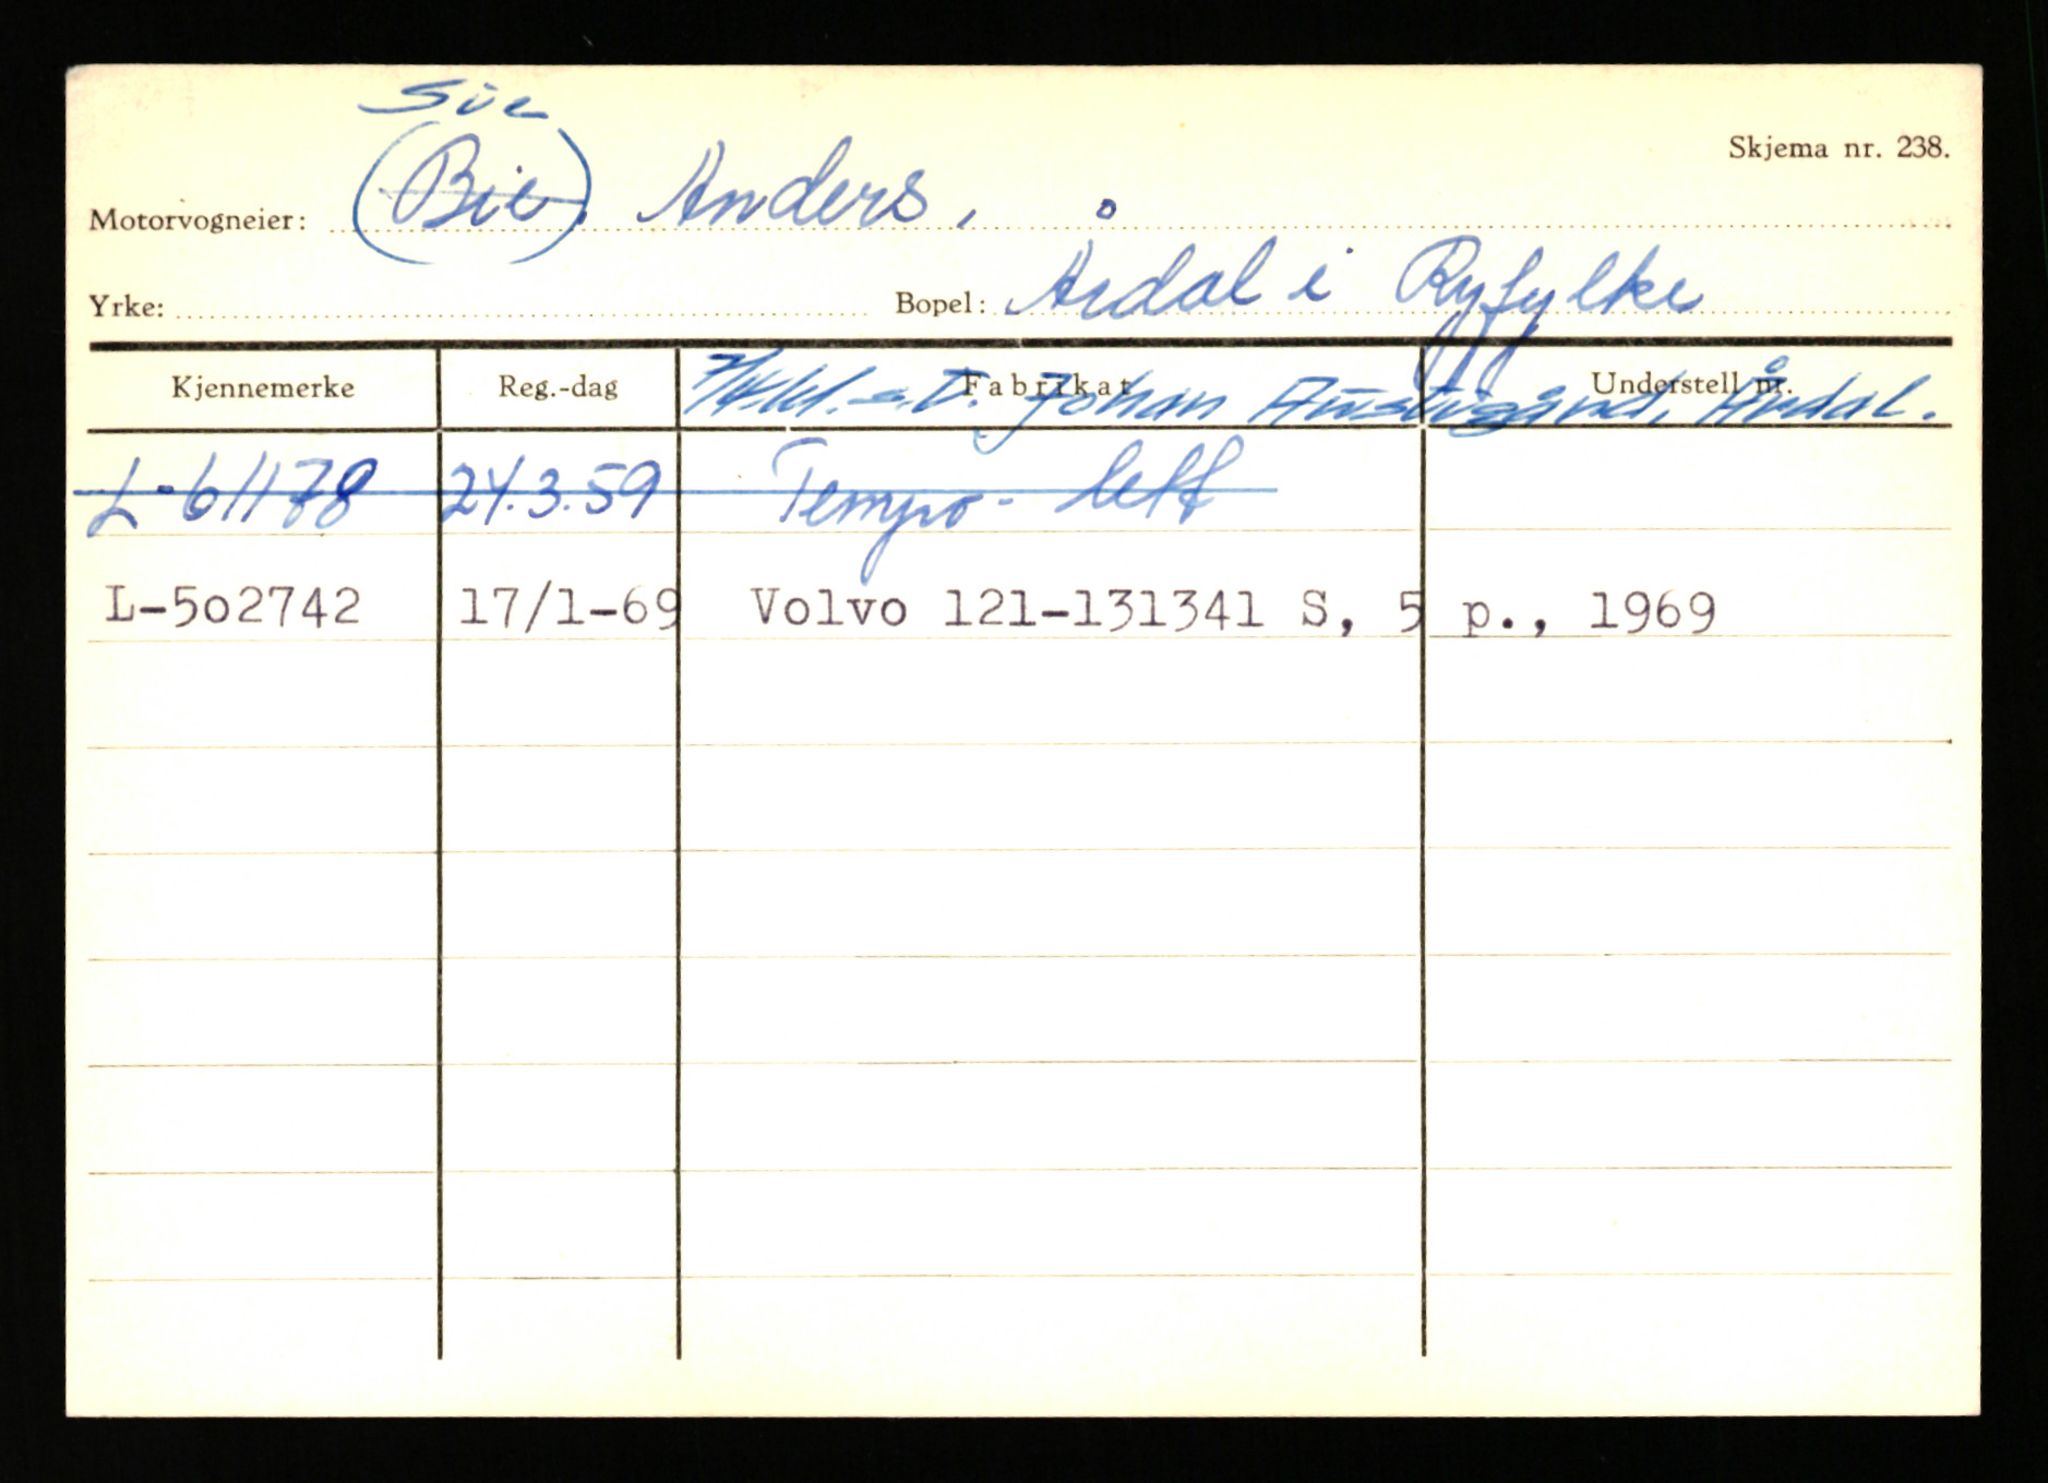 Sve
Skjema nr. 238.
Motorvogneier: (Bie), Anders.
Yrke: Bopel: Årdal i Ryfylke
Kjennemerke Reg.-dag Fabrikat Understell nr.
Johan Austigard, Årdal.
L-61178 24.3.59 Tempo- lett
L-502742 17/1-69 Volvo 121-131341 S, 5 p., 1969